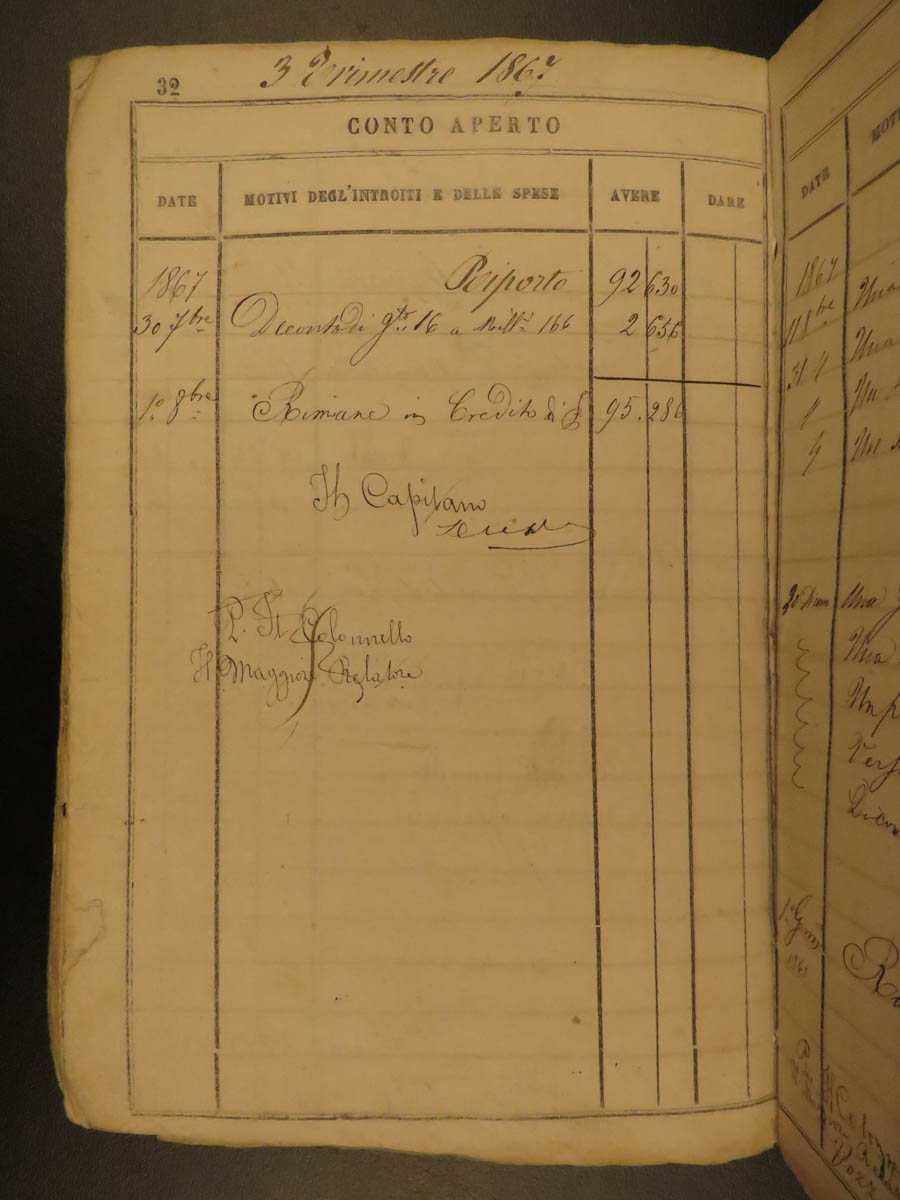 32
3 Trimestre 1867
CONTO APERTO
DATE MOTIVI DEGL'INTROITI E DELLE SPESE AVERE DARE
1867 Riporto 92 630
30 7bre Deconto di g.te 16 a Mill.i 166 2 656
1° 8bre Rimane in Credito di £ 95.286
Il Capitano
P. Il Colonnello
Il Maggiore Relatore
DATE MOTI
1867 Una
31 " Una
" Un
" Un
Una
Una
Un p
Vers
1°